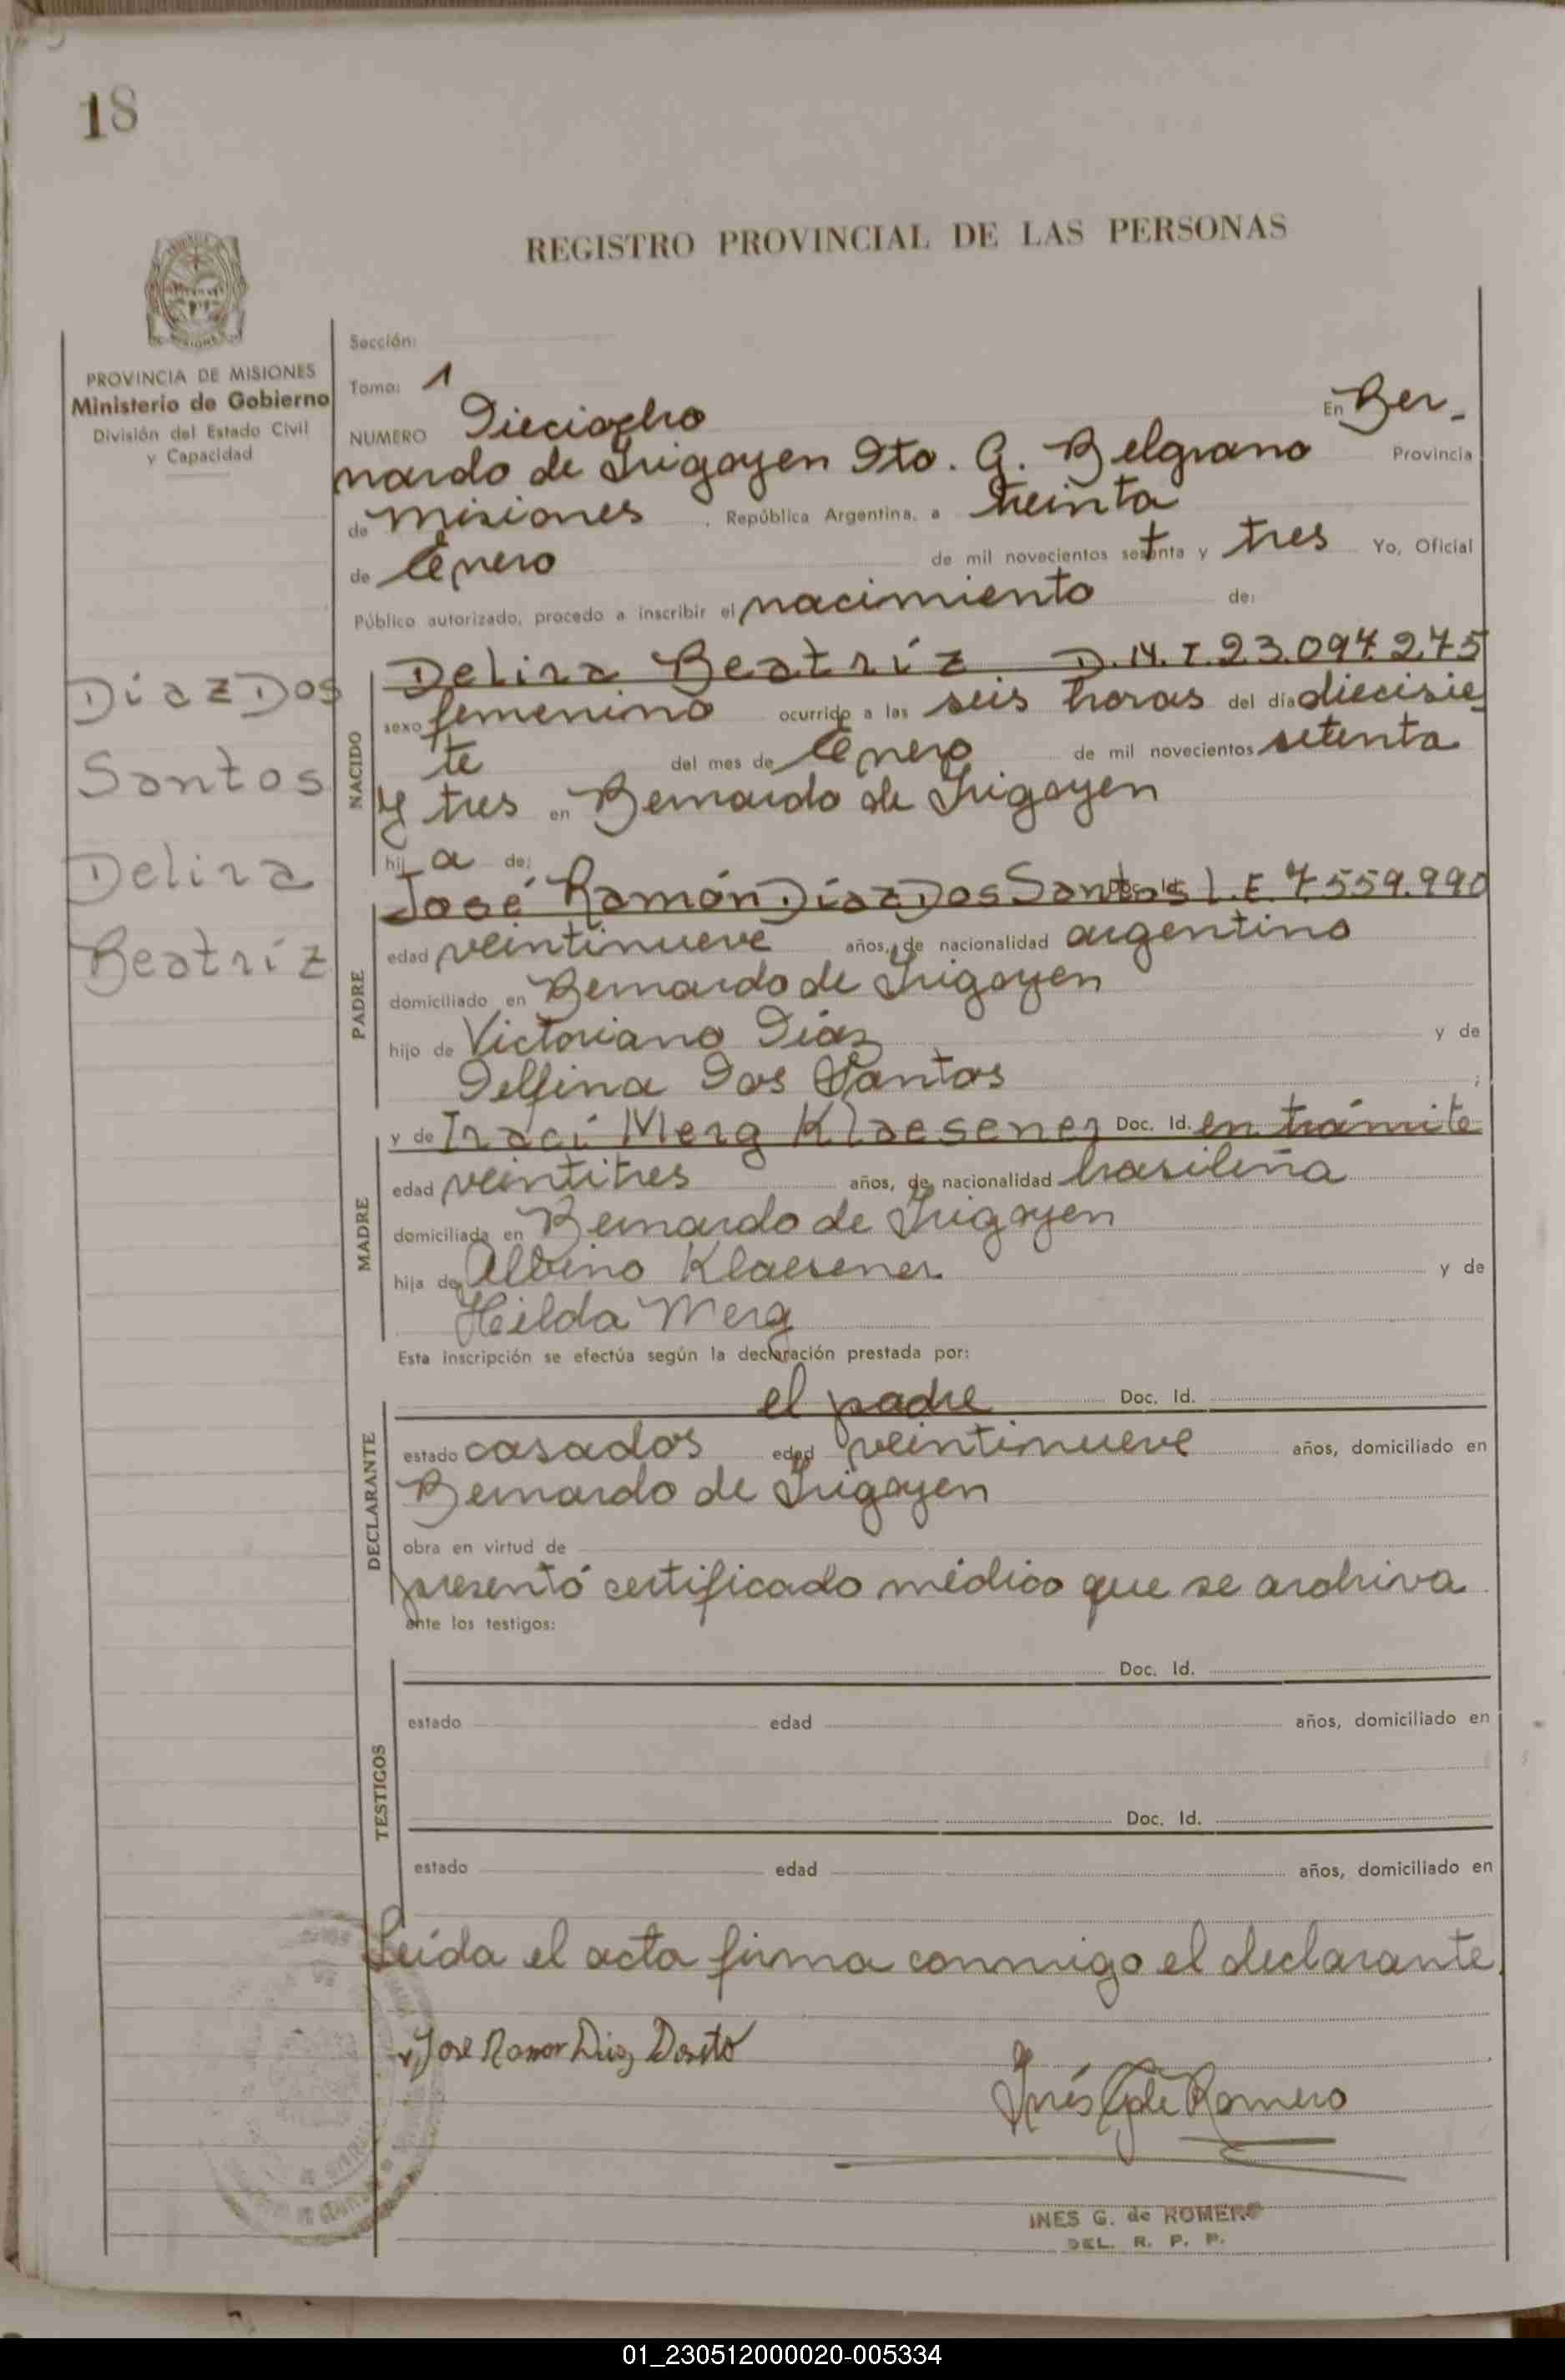 18
REGISTRO PROVINCIAL DE LAS PERSONAS
PROVINCIA DE MISIONES
Ministerio de Gobierno
División del Estado Civil
y Capacidad
Sección:
Tomo: 1
NUMERO Dieciocho En Ber-
nardo de Irigoyen Dto. G. Belgrano Provincia
de Misiones, República Argentina, a treinta
de Enero de mil novecientos setenta y tres Yo, Oficial
Público autorizado, procedo a inscribir el nacimiento de:
Díaz Dos
Santos
Delira
Beatríz
NACIDO
Delira Beatríz D.N.I. 23.094.275
sexo femenino ocurrido a las seis horas del día diecisie
te del mes de Enero de mil novecientos setenta
y tres en Bernardo de Irigoyen
hij a de:
PADRE
José Ramón Díaz Dos Santos L.E. 7.559.990
edad veintinueve años, de nacionalidad argentino
domiciliado en Bernardo de Irigoyen
hijo de Victoriano Díaz y de
Delfina Dos Santos ;
MADRE
y de Iraci Merg Klaesener Doc. Id. en trámite
edad veintitres años, de nacionalidad brasileña
domiciliada en Bernardo de Irigoyen
hija de Albino Klaesener y de
Hilda Merg
Esta inscripción se efectúa según la declaración prestada por:
DECLARANTE
el padre Doc. Id.
estado casados edad veintinueve años, domiciliado en
Bernardo de Irigoyen
obra en virtud de
presentó certificado médico que se archiva
ante los testigos:
TESTIGOS
Doc. Id.
estado edad años, domiciliado en
Doc. Id.
estado edad años, domiciliado en
Leída el acta firma conmigo el declarante.
José Ramon Diaz
Inés G de Romero
INES G. de ROMERO
DEL. R. P. P.
01_230512000020-005334